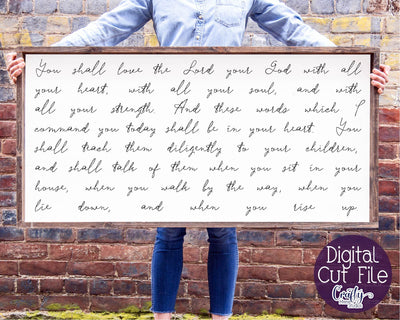 You shall love the Lord your God with all
your heart, with all your soul, and with
all your strength And these words which I
command you today shall be in your heart. You
shall teach them diligently to your children,
and shall talk of them when you sit in your
house, when you walk by the way, when you
lie down, and when you rise up.
Digital
Cut File
Crafty